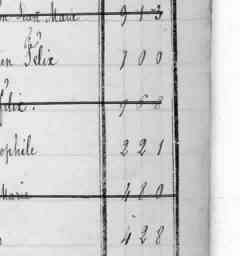 Jean Marie 913
Félix 700
Félix. 968
ophile 221
Marie 480
428